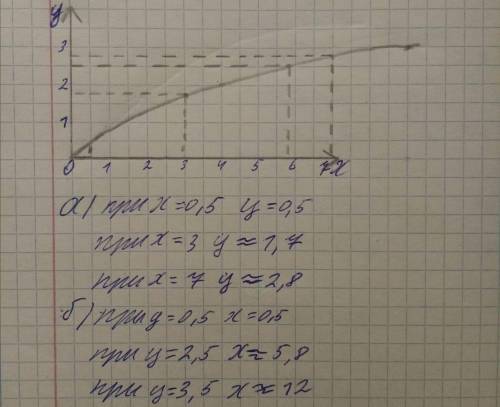 y
3
2
1
0 1 2 3 4 5 6 7 X
а) при x = 0,5 y = 0,5
при x = 3 y ≈ 1,7
при x = 7 y ≈ 2,8
б) при y = 0,5 x = 0,5
при y = 2,5 x ≈ 5,8
при y = 3,5 x ≈ 12